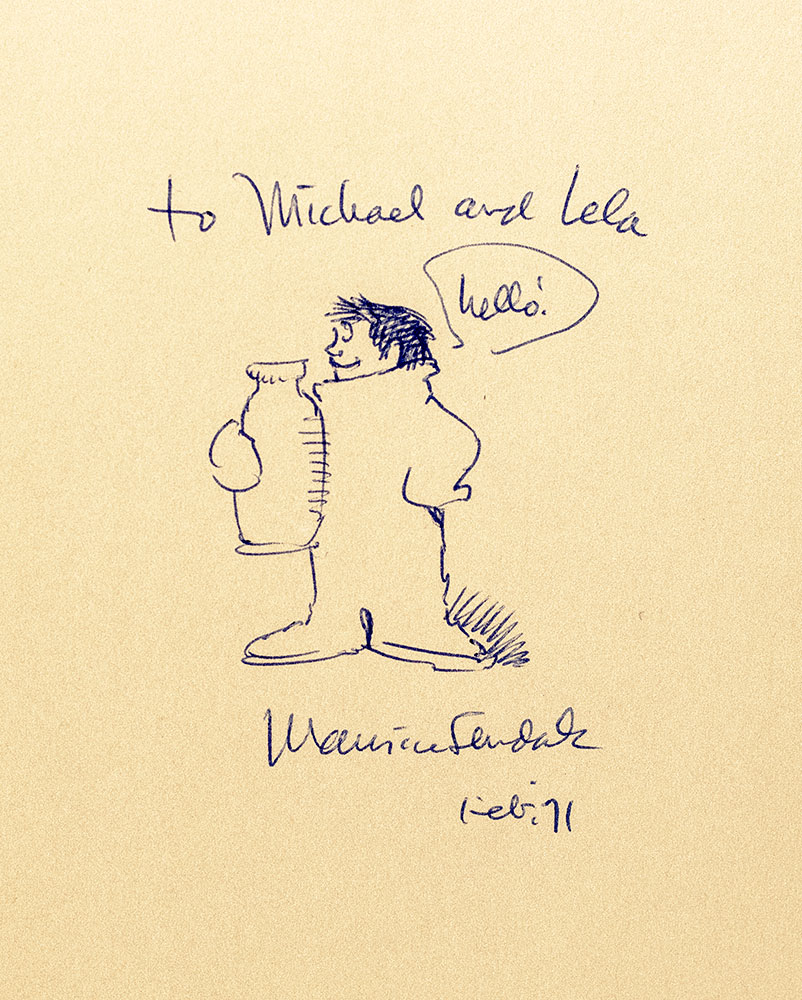 to Michael and Lela
hello!
Maurice Sendak
Feb. 71